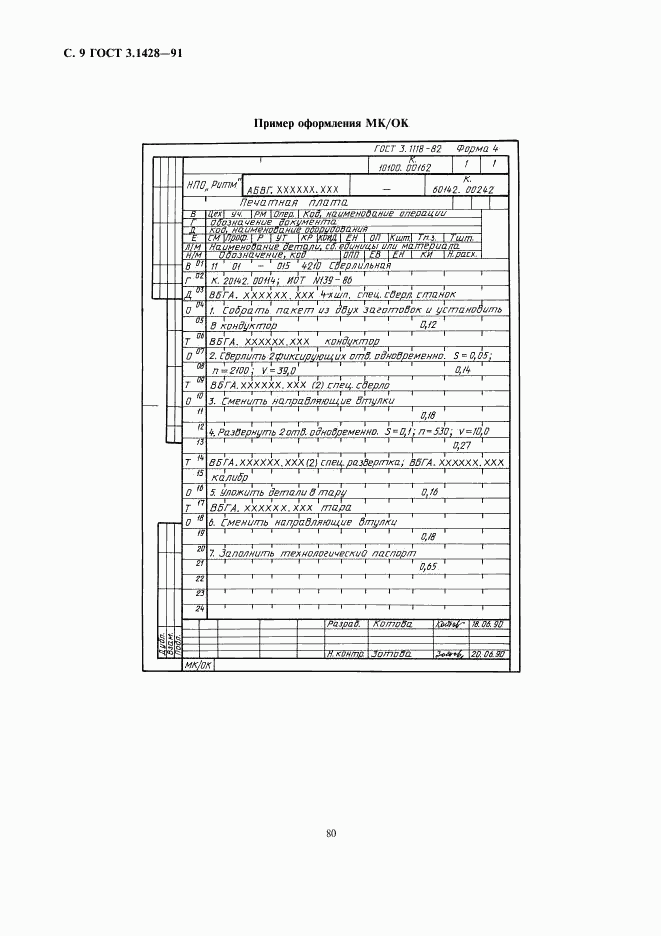 С. 9 ГОСТ 3.1428—91
Пример оформления МК/ОК
ГОСТ 3.1118-82 Форма 4
К.
10100.00162 1 1
НПО „Ритм" АБВГ.ХХХХХХ.ХХХ — К.
60142.00242
Печатная плата
В Цех Уч. РМ Опер. Код, наименование операции
Г Обозначение документа
Д Код, наименование оборудования
Е СМ Проф. Р УТ КР КОИД ЕН ОП Кшт. Тпз. Тшт.
Л/М Наименование детали, сб. единицы или материала
Н/М Обозначение, код ОПП ЕВ ЕН КИ Н.расх.
В 01 11 01 — 015 4210 Сверлильная
Г 02 К. 20142. 00114; ИОТ N139-86
Д 03 ВБГА. ХХХХХХ. ХХХ 4-хшп. спец. сверл. станок
О 04 1. Собрать пакет из двух заготовок и установить
05 в кондуктор 0,12
Т 06 ВБГА. ХХХХХХ. ХХХ кондуктор
О 07 2. Сверлить 2 фиксирующих отв. одновременно. S=0,05;
08 n=2100; V=39,0 0,14
Т 09 ВБГА. ХХХХХХ. ХХХ (2) спец. сверло
О 10 3. Сменить направляющие втулки
11 0,18
12 4. Развернуть 2 отв. одновременно. S=0,1; n=530; V=10,0
13 0,27
Т 14 ВБГА. ХХХХХХ. ХХХ (2) спец. развертка; ВБГА. ХХХХХХ. ХХХ
15 калибр
О 16 5. Уложить детали в тару 0,16
Т 17 ВБГА. ХХХХХХ. ХХХ тара
О 18 6. Сменить направляющие втулки
19 0,18
20 7. Заполнить технологический паспорт
21 0,65
22
23
24
Разраб. Котова 18.06.90
Дубл.
Взам.
Подл.
Н.контр. Зотова 20.06.90
МК/ОК
80